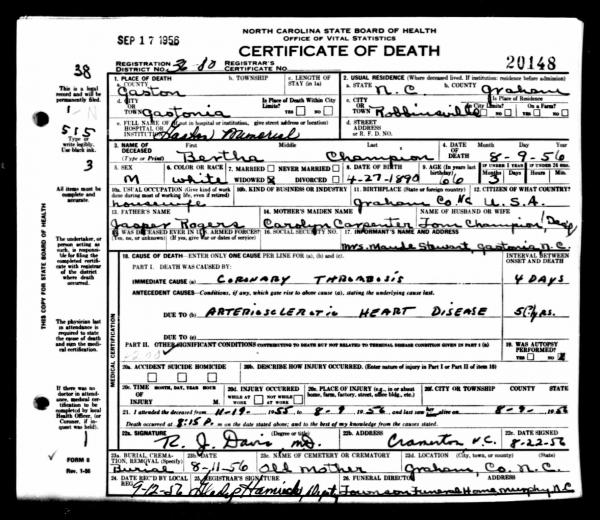 NORTH CAROLINA STATE BOARD OF HEALTH
OFFICE OF VITAL STATISTICS
SEP 17 1956
CERTIFICATE OF DEATH
REGISTRATION DISTRICT NO. 36-80 REGISTRAR'S CERTIFICATE NO. 20148
38
This is a legal record and will be permanently filed.
515
Type or write legibly. Use black ink.
3
All items must be complete and accurate.
The undertaker, or person acting as such, is responsible for filing the completed certificate with registrar of the district where death occurred.
The physician last in attendance is required to state the cause of death and sign the medical certification.
If there was no doctor in attendance, medical certification to be completed by local Health Officer, (or Coroner, if inquest was held.)
1
FORM 8
Rev. 1-56
THIS COPY FOR STATE BOARD OF HEALTH
MEDICAL CERTIFICATION
1. PLACE OF DEATH
a. COUNTY Gaston
b. TOWNSHIP
c. LENGTH OF STAY (in 1a)
2. USUAL RESIDENCE (Where deceased lived. If institution: residence before admission)
a. STATE N.C. b. COUNTY Graham
d. CITY OR TOWN Gastonia
Is Place of Death Within City Limits? YES NO
c. CITY OR TOWN Robbinsville
Is Place of Residence Within City Limits? YES NO
e. FULL NAME OF HOSPITAL OR INSTITUTION (If not in hospital or institution, give street address or location) Memorial
d. STREET ADDRESS OR R. F. D. NO.
3. NAME OF DECEASED (Type or Print) First Middle Last
Bertha Champion
4. DATE OF DEATH Month Day Year
8-9-56
5. SEX M
6. COLOR OR RACE White
7. MARRIED NEVER MARRIED WIDOWED DIVORCED
8. DATE OF BIRTH 4-27-1890
9. AGE (In years last birthday) 66
3
10a. USUAL OCCUPATION (Give kind of work done during most of working life, even if retired) housewife
10b. KIND OF BUSINESS OR INDUSTRY
11. BIRTHPLACE (State or foreign country) Graham Co NC
12. CITIZEN OF WHAT COUNTRY? U.S.A.
13. FATHER'S NAME Jasper Rogers
14. MOTHER'S MAIDEN NAME Carolyn Carpenter
NAME OF HUSBAND OR WIFE Tom Champion
15. WAS DECEASED EVER IN U.S. ARMED FORCES? (Yes, no, or unknown) (If yes, give war or dates of service)
16. SOCIAL SECURITY NO.
17. INFORMANT'S NAME AND ADDRESS
Mrs. Maude Stewart, Gastonia, N.C.
18. CAUSE OF DEATH—ENTER ONLY ONE CAUSE PER LINE FOR (a), (b), and (c).
INTERVAL BETWEEN ONSET AND DEATH
PART I. DEATH WAS CAUSED BY:
IMMEDIATE CAUSE (a) CORONARY THROMBOSIS 4 DAYS
ANTECEDENT CAUSES—Conditions, if any, which gave rise to above cause (a), stating the underlying cause last.
DUE TO (b) ARTERIOSCLEROTIC HEART DISEASE
DUE TO (c)
PART II. OTHER SIGNIFICANT CONDITIONS CONTRIBUTING TO DEATH BUT NOT RELATED TO TERMINAL DISEASE CONDITION GIVEN IN PART I (a)
19. WAS AUTOPSY PERFORMED? YES NO
20a. ACCIDENT SUICIDE HOMICIDE
20b. DESCRIBE HOW INJURY OCCURRED. (Enter nature of injury in Part I or Part II of item 18)
20c. TIME OF INJURY MONTH, DAY, YEAR HOUR M.
20d. INJURY OCCURRED WHILE AT WORK NOT WHILE AT WORK
20e. PLACE OF INJURY (e.g., in or about home, farm, factory, street, office bldg., etc.)
20f. CITY OR TOWNSHIP COUNTY STATE
21. I attended the deceased from 11-19-1955 to 8-9-1956 and last saw her alive on 8-9-1956
Death occurred at 8:15 P. m. on the date stated above; and to the best of my knowledge from the causes stated.
22a. SIGNATURE (Degree or title) R. J. Davis M.D.
22b. ADDRESS Cramerton N.C.
22c. DATE SIGNED 8-22-56
23a. BURIAL, CREMATION, REMOVAL (Specify) Burial
23b. DATE 8-11-56
23c. NAME OF CEMETERY OR CREMATORY Old Mother
23d. LOCATION (City, town, or county) (State) Graham, Co. N.C.
24. DATE REC'D BY LOCAL REG. 9-12-56
25. REGISTRAR'S SIGNATURE
26. FUNERAL DIRECTOR ADDRESS Townson Funeral Home Murphy N.C.